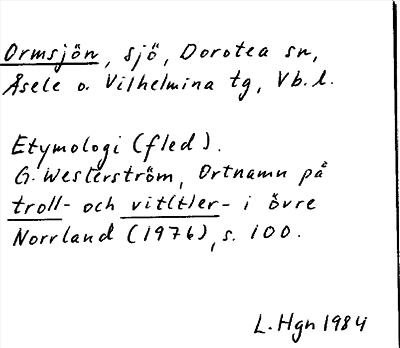 Ormsjön, sjö, Dorotea sn,
Åsele o. Vilhelmina tg, Vb.l.
Etymologi (fled).
G. Westerström, Ortnamn på
troll- och vit(t)er- i övre
Norrland (1976), s. 100.
L. Hgn 1984